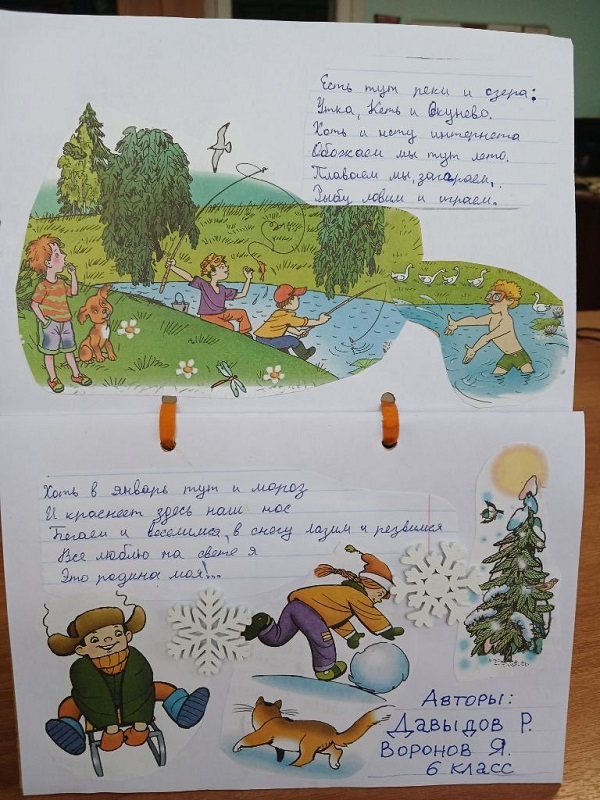 Есть тут реки и озера:
Утка, Кеть и Окунево.
Хоть и нету интернета
Обожаем мы тут лето.
Плаваем мы, загараем,
Рыбу ловим и играем.
Хоть в январь тут и мороз
И краснеет здесь наш нос
Бегаем и веселимся, в снегу лазим и резвимся
Все люблю на свете я
Это родина моя!..
Авторы:
Давыдов Р.
Воронов Я.
6 класс